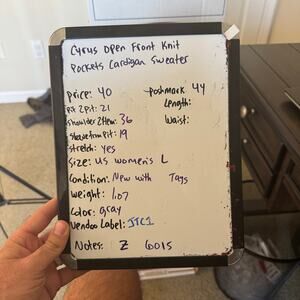 Cyrus Open Front Knit
Pockets Cardigan Sweater
Price: 40
Poshmark 44
Pit 2 Pit: 21
Length:
Shoulder 2 Hem: 36
Waist:
Sleeve from Pit: 19
Stretch: yes
Size: US Women's L
Condition: New with Tags
Weight: 1.07
Color: gray
Vendoo Label: JTC1
Notes: Z